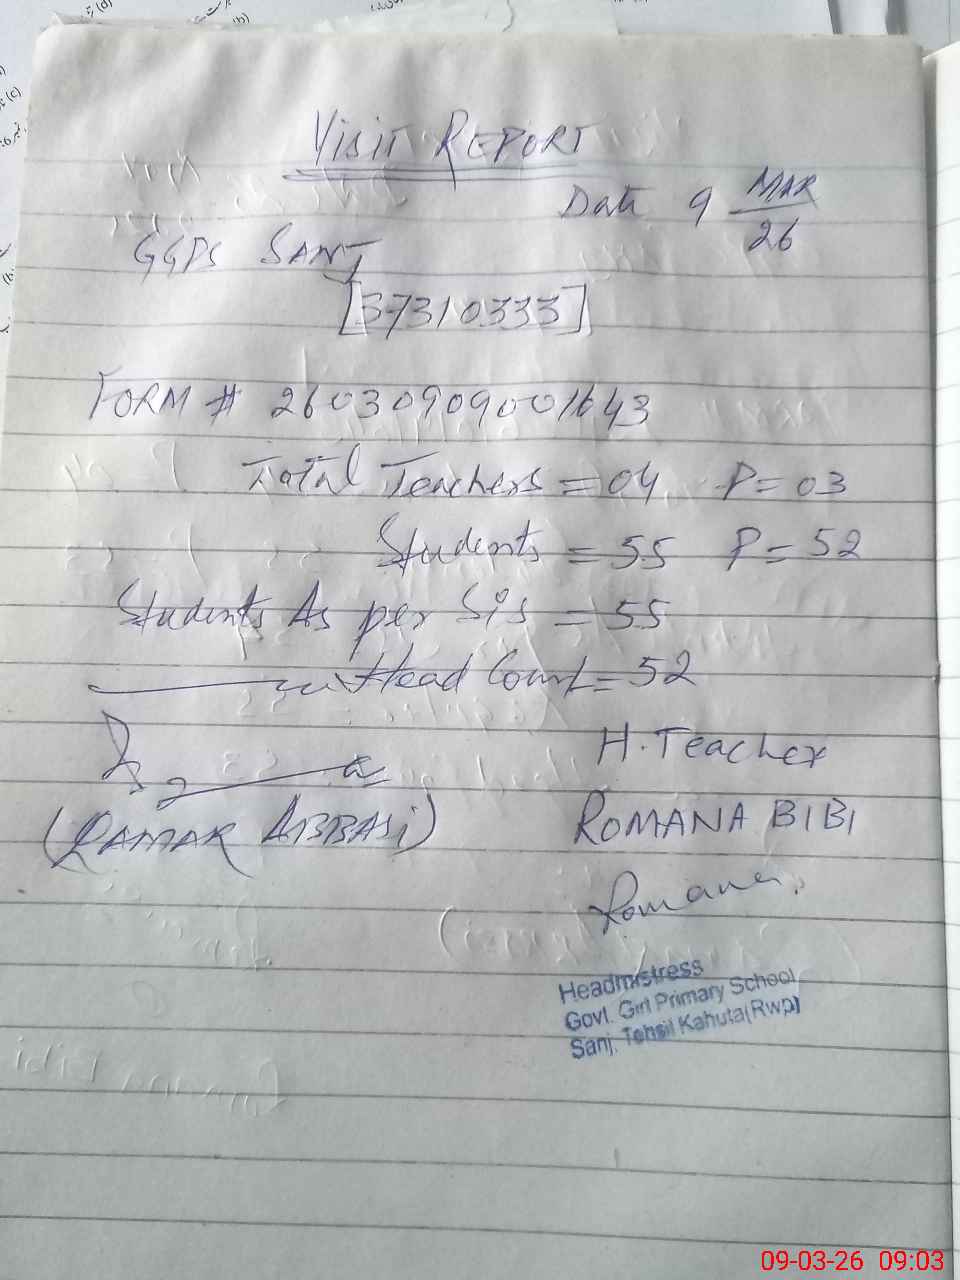 VISIT REPORT
Date 9 MAR
26
GGPS SANJ
[37310333]
FORM # 260309090001643
Total Teachers = 04 P = 03
Students = 55 P = 52
Students As per Sis = 55
Head Count = 52
H. Teacher
(QAMAR ABBASi)
ROMANA BIBI
Romana
Headmistress
Govt. Girl Primary School
Sanj. Tehsil Kahuta(Rwp)
09-03-26 09:03